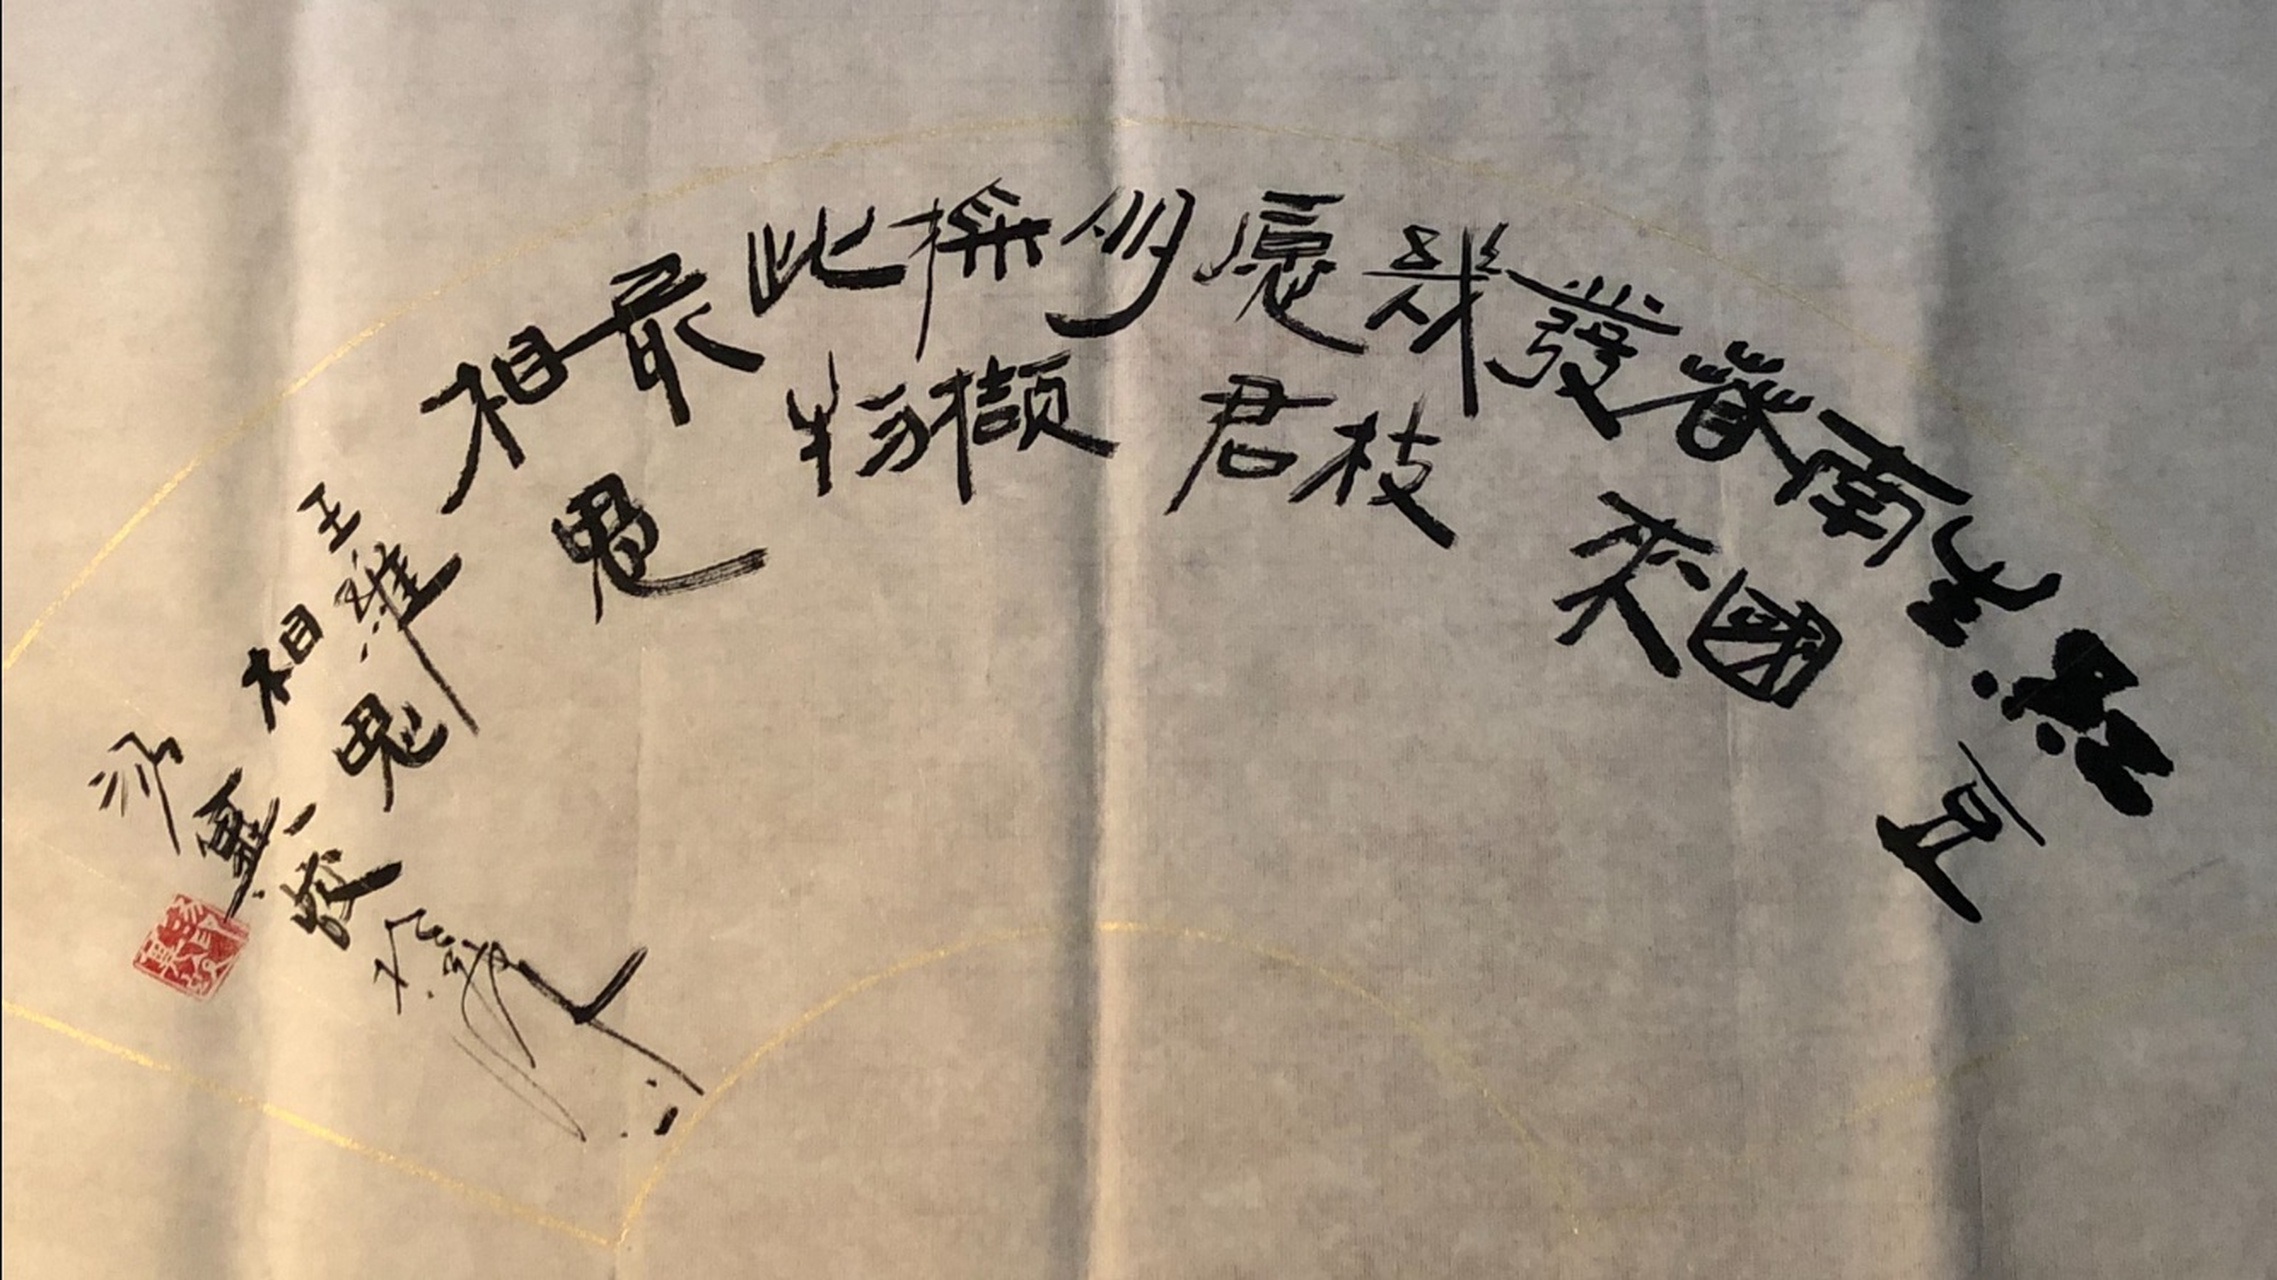 紅豆
生
南國
春來
發
幾枝
愿君
多
採撷
此物
最
相思
王維
相思